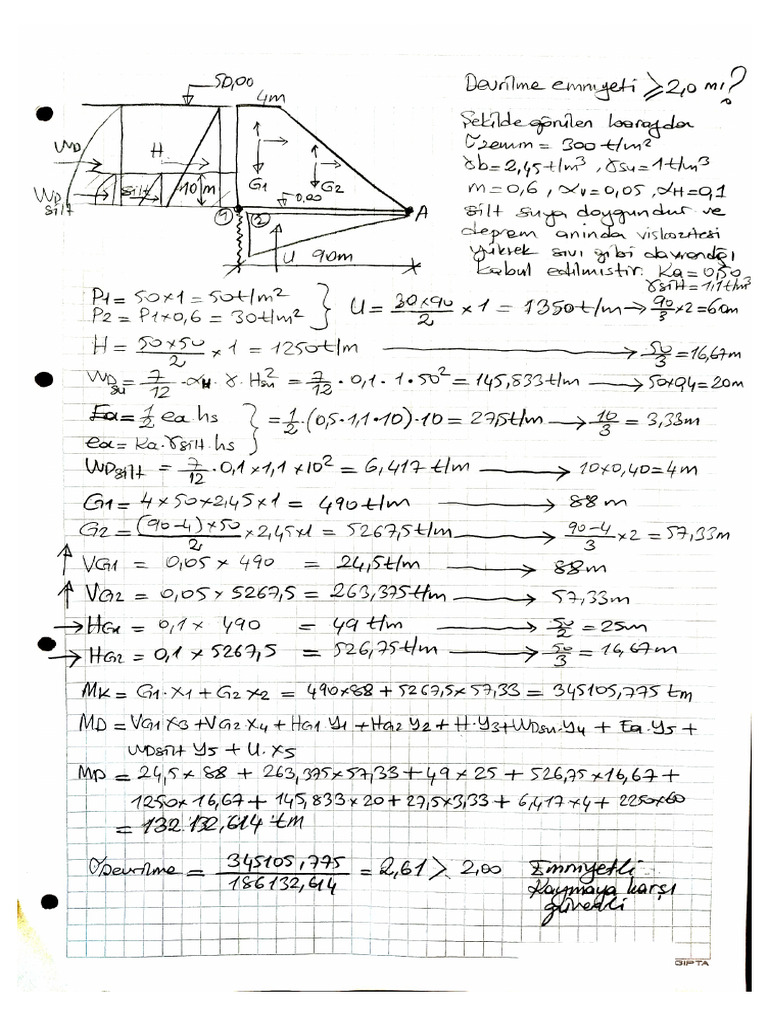 50,00
4m
WD
H
WD silt
silt
10 m
G1
G2
0,00
1
2
A
U
90m
Devrilme emniyeti ≥ 2,0 mı?
Şekilde görülen barajda
σzemm = 300 t/m²
γb = 2,45 t/m³, γsu = 1 t/m³
m = 0,6, αv = 0,05, αH = 0,1
silt suya doygundur ve
deprem anında viskozitesi
yüksek sıvı gibi davrandığı
kabul edilmiştir. Ka = 0,50
γsilt = 1,1 t/m³
P1 = 50x1 = 50 t/m²
P2 = P1x0,6 = 30 t/m²
U = 30x90/2 x 1 = 1350 t/m → 90/3 x2 = 60m
H = 50x50/2 x 1 = 1250 t/m → 50/3 = 16,67m
WDsu = 7/12 · αH · γ · Hsu² = 7/12 · 0,1 · 1 · 50² = 145,833 t/m → 50x0,4 = 20m
Ea = 1/2 ea.hs
ea = Ka.γsilt.hs
= 1/2 · (0,5·1,1·10)·10 = 27,5 t/m → 10/3 = 3,33m
WDsilt = 7/12 · 0,1x1,1x10² = 6,417 t/m → 10x0,40 = 4m
G1 = 4x50x2,45x1 = 490 t/m → 88 m
G2 = (90-4)x50/2 x2,45x1 = 5267,5 t/m → 90-4/3 x2 = 57,33m
↑ VG1 = 0,05 x 490 = 24,5 t/m → 88m
↑ VG2 = 0,05 x 5267,5 = 263,375 t/m → 57,33m
→ HG1 = 0,1 x 490 = 49 t/m → 50/2 = 25m
→ HG2 = 0,1 x 5267,5 = 526,75 t/m → 50/3 = 16,67m
MK = G1.x1 + G2 x2 = 490x88 + 5267,5x57,33 = 345105,775 tm
MD = VG1 x3 + VG2 x4 + HG1.y1 + HG2 y2 + H.y3 + WDsu.y4 + Ea.y5 +
WDsilt y5 + U.x5
MD = 24,5 x 88 + 263,375x57,33 + 49 x 25 + 526,75 x16,67 +
1250x 16,67 + 145,833 x20 + 27,5x3,33 + 6,417 x4 + 2250x60
= 132 132,614 tm
γDevrilme = 345105,775/186132,614 = 2,61 > 2,00 Emniyetli
Kaymaya karşı
güvenli
GIPTA